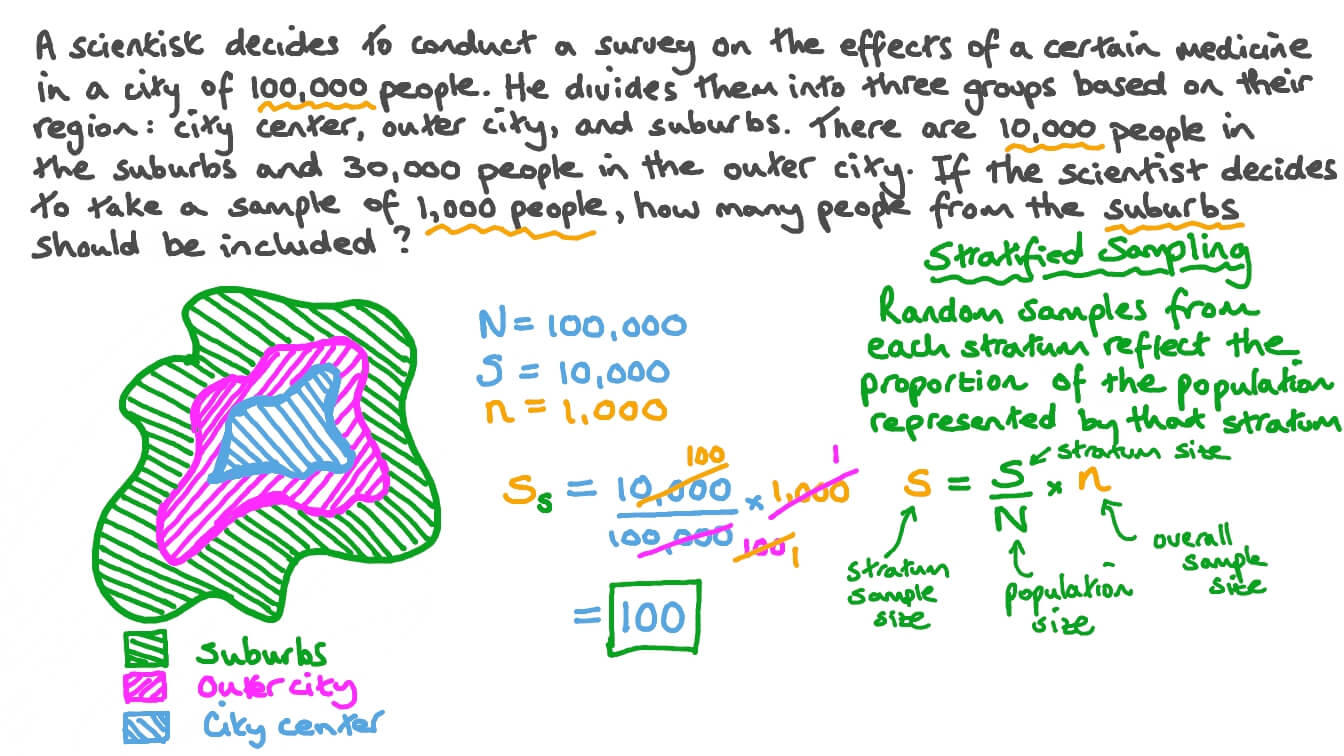 A scientist decides to conduct a survey on the effects of a certain medicine
in a city of 100,000 people. He divides them into three groups based on their
region: city center, outer city, and suburbs. There are 10,000 people in
the suburbs and 30,000 people in the outer city. If the scientist decides
to take a sample of 1,000 people, how many people from the suburbs
should be included?
Stratified Sampling
Random samples from
each stratum reflect the
proportion of the population
represented by that stratum
N = 100,000
S = 10,000
n = 1,000
100 1
Ss = 10,000 × 1,000
100,000 100 1
= 100
s = S × n
N
stratum size
stratum
sample
size
population
size
overall
sample
size
Suburbs
Outer city
City center